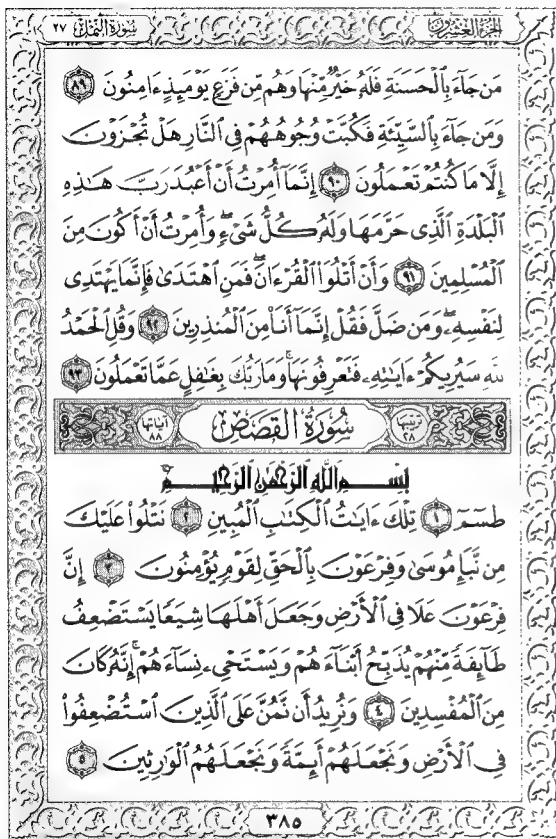 الجزء العشرون سورة النمل ٢٧
مَن جَآءَ بِٱلْحَسَنَةِ فَلَهُۥ خَيْرٌ مِّنْهَا وَهُم مِّن فَزَعٍ يَوْمَئِذٍ ءَامِنُونَ ٨٩
وَمَن جَآءَ بِٱلسَّيِّئَةِ فَكُبَّتْ وُجُوهُهُمْ فِى ٱلنَّارِ هَلْ تُجْزَوْنَ
إِلَّا مَا كُنتُمْ تَعْمَلُونَ ٩٠ إِنَّمَآ أُمِرْتُ أَنْ أَعْبُدَ رَبَّ هَـٰذِهِ
ٱلْبَلْدَةِ ٱلَّذِى حَرَّمَهَا وَلَهُۥ كُلُّ شَىْءٍ ۖ وَأُمِرْتُ أَنْ أَكُونَ مِنَ
ٱلْمُسْلِمِينَ ٩١ وَأَنْ أَتْلُوَا۟ ٱلْقُرْءَانَ ۖ فَمَنِ ٱهْتَدَىٰ فَإِنَّمَا يَهْتَدِى
لِنَفْسِهِۦ ۖ وَمَن ضَلَّ فَقُلْ إِنَّمَآ أَنَا۠ مِنَ ٱلْمُنذِرِينَ ٩٢ وَقُلِ ٱلْحَمْدُ
لِلَّهِ سَيُرِيكُمْ ءَايَـٰتِهِۦ فَتَعْرِفُونَهَا ۚ وَمَا رَبُّكَ بِغَـٰفِلٍ عَمَّا تَعْمَلُونَ ٩٣
ترتيبها ٢٨ سُورَةُ القَصَصِ آياتها ٨٨
بِسْمِ ٱللَّهِ ٱلرَّحْمَـٰنِ ٱلرَّحِيمِ
طسٓمٓ ١ تِلْكَ ءَايَـٰتُ ٱلْكِتَـٰبِ ٱلْمُبِينِ ٢ نَتْلُوا۟ عَلَيْكَ
مِن نَّبَإِ مُوسَىٰ وَفِرْعَوْنَ بِٱلْحَقِّ لِقَوْمٍ يُؤْمِنُونَ ٣ إِنَّ
فِرْعَوْنَ عَلَا فِى ٱلْأَرْضِ وَجَعَلَ أَهْلَهَا شِيَعًا يَسْتَضْعِفُ
طَآئِفَةً مِّنْهُمْ يُذَبِّحُ أَبْنَآءَهُمْ وَيَسْتَحْىِۦ نِسَآءَهُمْ ۚ إِنَّهُۥ كَانَ
مِنَ ٱلْمُفْسِدِينَ ٤ وَنُرِيدُ أَن نَّمُنَّ عَلَى ٱلَّذِينَ ٱسْتُضْعِفُوا۟
فِى ٱلْأَرْضِ وَنَجْعَلَهُمْ أَئِمَّةً وَنَجْعَلَهُمُ ٱلْوَٰرِثِينَ ٥
٣٨٥